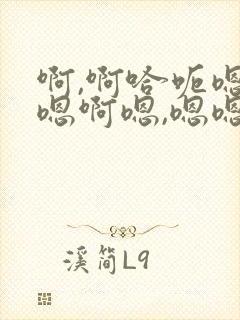 啊,啊哈呃嗯
嗯啊嗯,嗯嗯
溪简L9